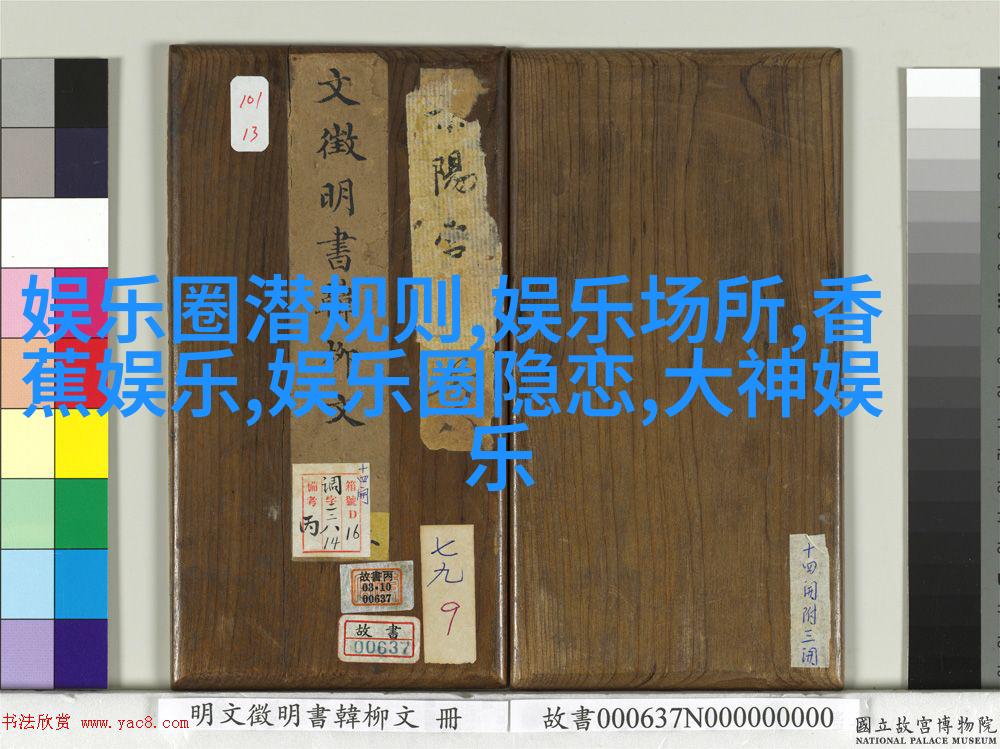 101
13
文徵明書韓柳文
陽宮
娱乐圈潜规则,娱乐场所,香
蕉娱乐,娱乐圈隐恋,大神娱
乐
十四開
箱號D
16
調字三八
14
備考
丙
故書丙
03·10
00637
故書
00637
七九
9
十四開附三開
明文徵明書韓柳文 冊
故書000637N000000000
書法欣赏 www.yac8.com
國立故宮博物院
NATIONAL PALACE MUSEUM